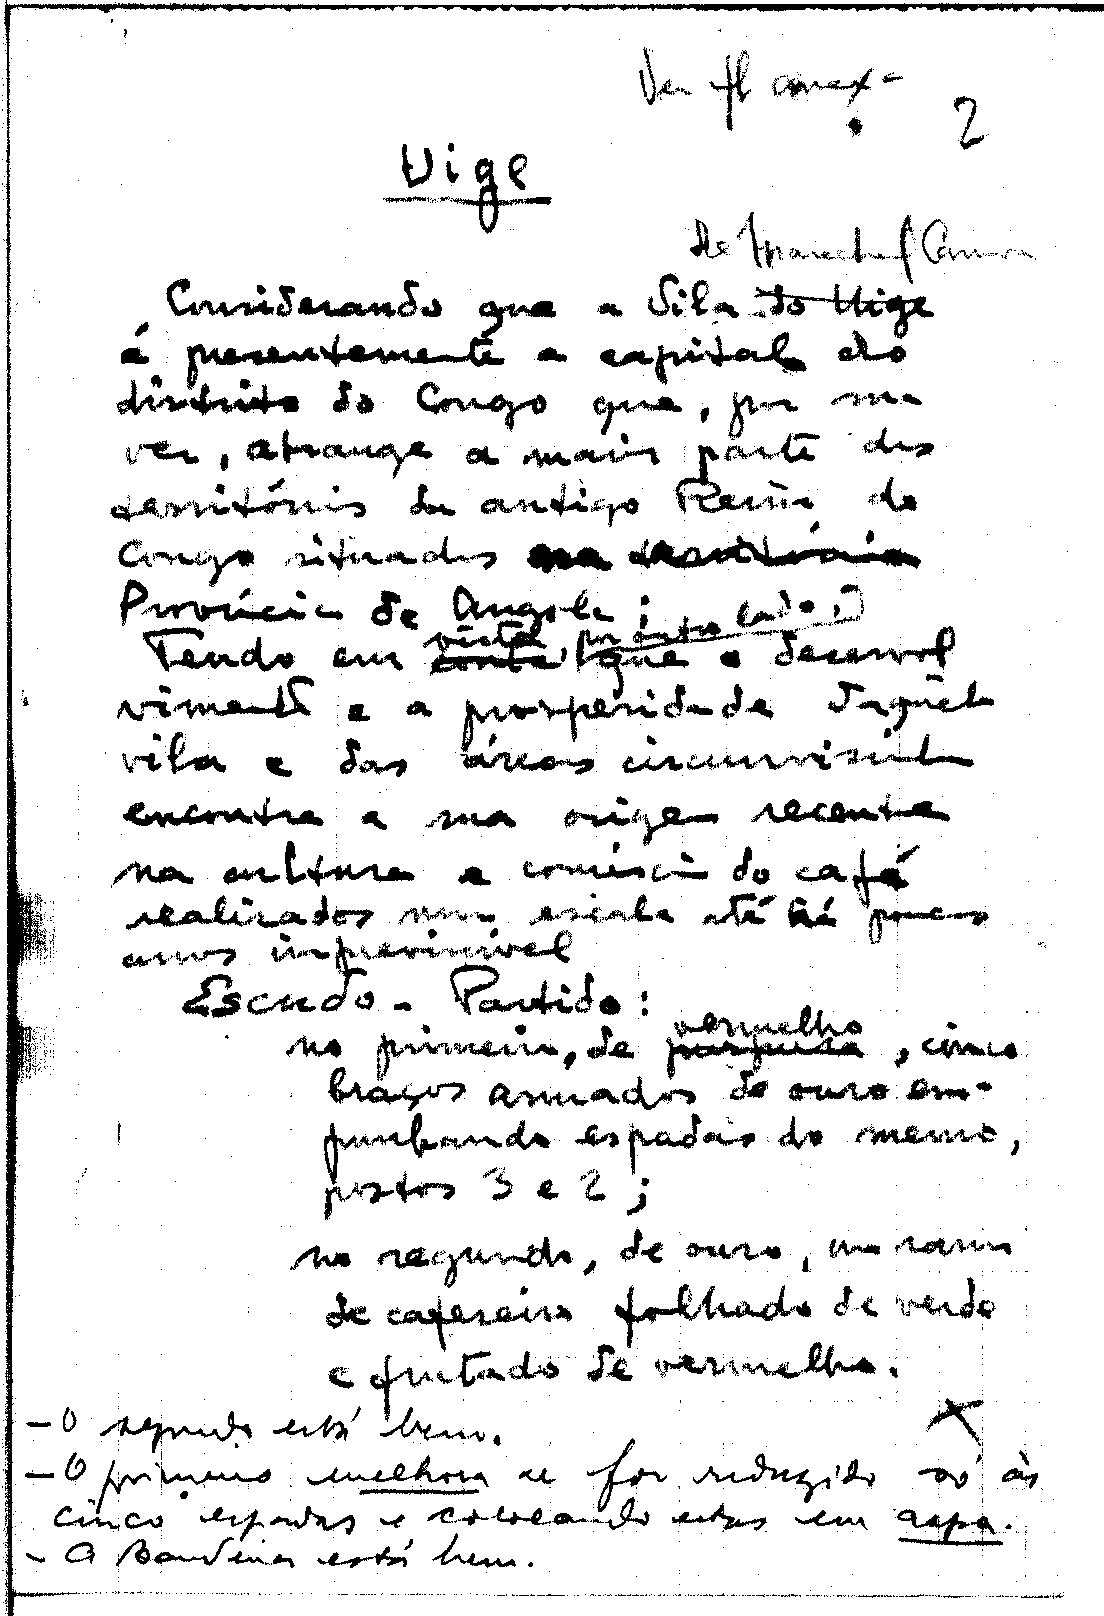 Ver fl anexa
2
Uige
de Marechal Carmona
Considerando que a Vila do Uige
é presentemente a capital do
distrito do Congo que, por sua
vez, abrange a maior parte dos
territórios do antigo Reino do
Congo situados na território
Província de Angola;
vista, por outro lado,
Tendo em conta que o desenvol
vimento e a prosperidade daquela
vila e das áreas circunvisinhas
encontra a sua origem recente
na cultura e comércio do café
realizados numa escala até há poucos
anos imprevisível
Escudo - Partido:
vermelho
no primeiro, de purpura, cinco
braços armados de ouro em-
punhando espadas do mesmo,
postos 3 e 2;
no segundo, de ouro, um ramo
de cafeeeiro folhado de verde
e frutado de vermelho.
- O segundo está bem.
- O primeiro melhora se for reduzido só às
cinco espadas e colocando estas em aspa.
- A Bandeira está bem.